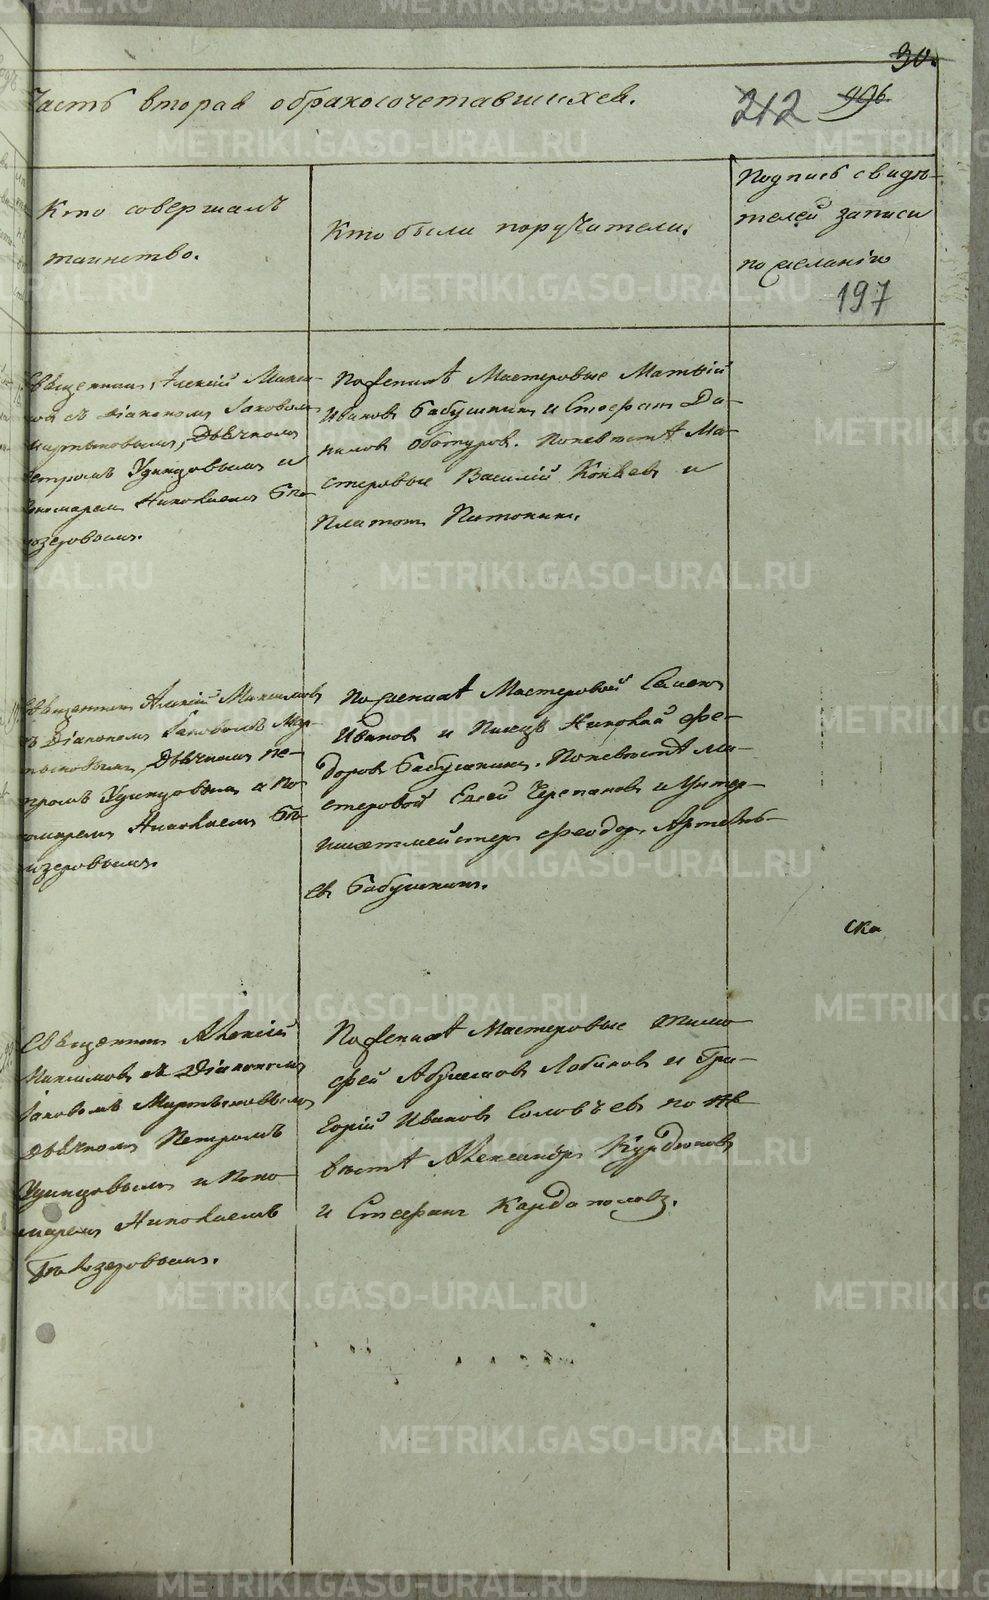 30.
Часть вторая о бракосочетавшихся.
212 996.
Кто совершалъ
таинство.
Кто были поручители.
Подпись свидѣ-
телей записи
по желанію
197
Священникъ Алексѣй Макси-
мовъ съ Діакономъ Іаковомъ
Мартыновымъ, Дьячкомъ
Петромъ Удинцовымъ и
Пономаремъ Николаемъ Бѣ-
лозеровымъ.
По женихѣ Мастеровые Матвій
Ивановъ Бабушкинъ и Стефанъ Да-
ниловъ Обатуровъ. По невѣстѣ Ма-
стеровые Василій Коневъ и
Платонъ Питонинъ.
Священникъ Алексій Максимовъ
съ Діакономъ Іаковомъ Мар-
тыновымъ, Дьячкомъ Пе-
тромъ Удинцовымъ и По-
номаремъ Николаемъ Бѣ-
лозеровымъ.
По женихѣ Мастеровой Семенъ
Ивановъ и Писецъ Николай Фе-
доровъ Бабушкинъ. По невѣстѣ Ма-
стеровой Елсей Черепановъ и Унтер-
шихтмейстеръ Феодоръ Артемь-
евъ Бабушкинъ.
ска
Священникъ Алексій
Максимовъ съ Діакономъ
Іаковомъ Мартыновымъ
Дьячкомъ Петромъ
Удинцовымъ и Поно-
маремъ Николаемъ
Бѣлозеровымъ.
По женихѣ Мастеровые Тимо-
фей Абрамовъ Лобановъ и Гри-
горій Ивановъ Соловьевъ по не-
вѣстѣ Александръ Курдюковъ
и Стефанъ Кардаполовъ.
METRIKI.GASO-URAL.RU